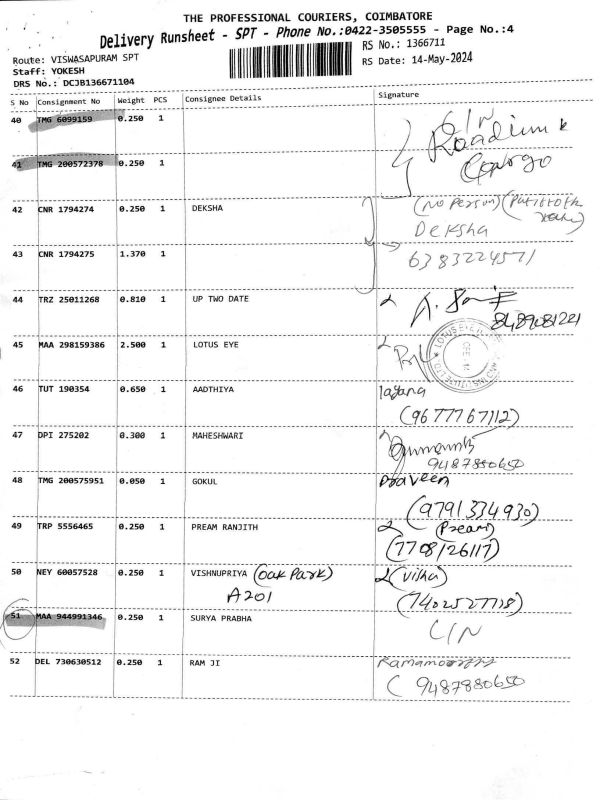 THE PROFESSIONAL COURIERS, COIMBATORE
Delivery Runsheet - SPT - Phone No.:0422-3505555 - Page No.:4
Route: VISWASAPURAM SPT
RS No.: 1366711
Staff: YOKESH
RS Date: 14-May-2024
DRS No.: DCJB136671104
S No Consignment No Weight PCS Consignee Details Signature
40 TMG 6099159 0.250 1 C/N
41 TMG 200572378 0.250 1
42 CNR 1794274 0.250 1 DEKSHA (No Person)
Deksha
43 CNR 1794275 1.370 1 6383224571
44 TRZ 25011268 0.810 1 UP TWO DATE
8489081221
45 MAA 298159386 2.500 1 LOTUS EYE
46 TUT 190354 0.650 1 AADTHIYA
(9677767112)
47 DPI 275202 0.300 1 MAHESHWARI
9487880650
48 TMG 200575951 0.050 1 GOKUL Praveen
(9791334930)
49 TRP 5556465 0.250 1 PREAM RANJITH (Pream)
(7708126117)
50 NEY 60057528 0.250 1 VISHNUPRIYA (Oak Park)
A201
(7402527718)
51 MAA 944991346 0.250 1 SURYA PRABHA C/N
52 DEL 730630512 0.250 1 RAM JI
(9487880650